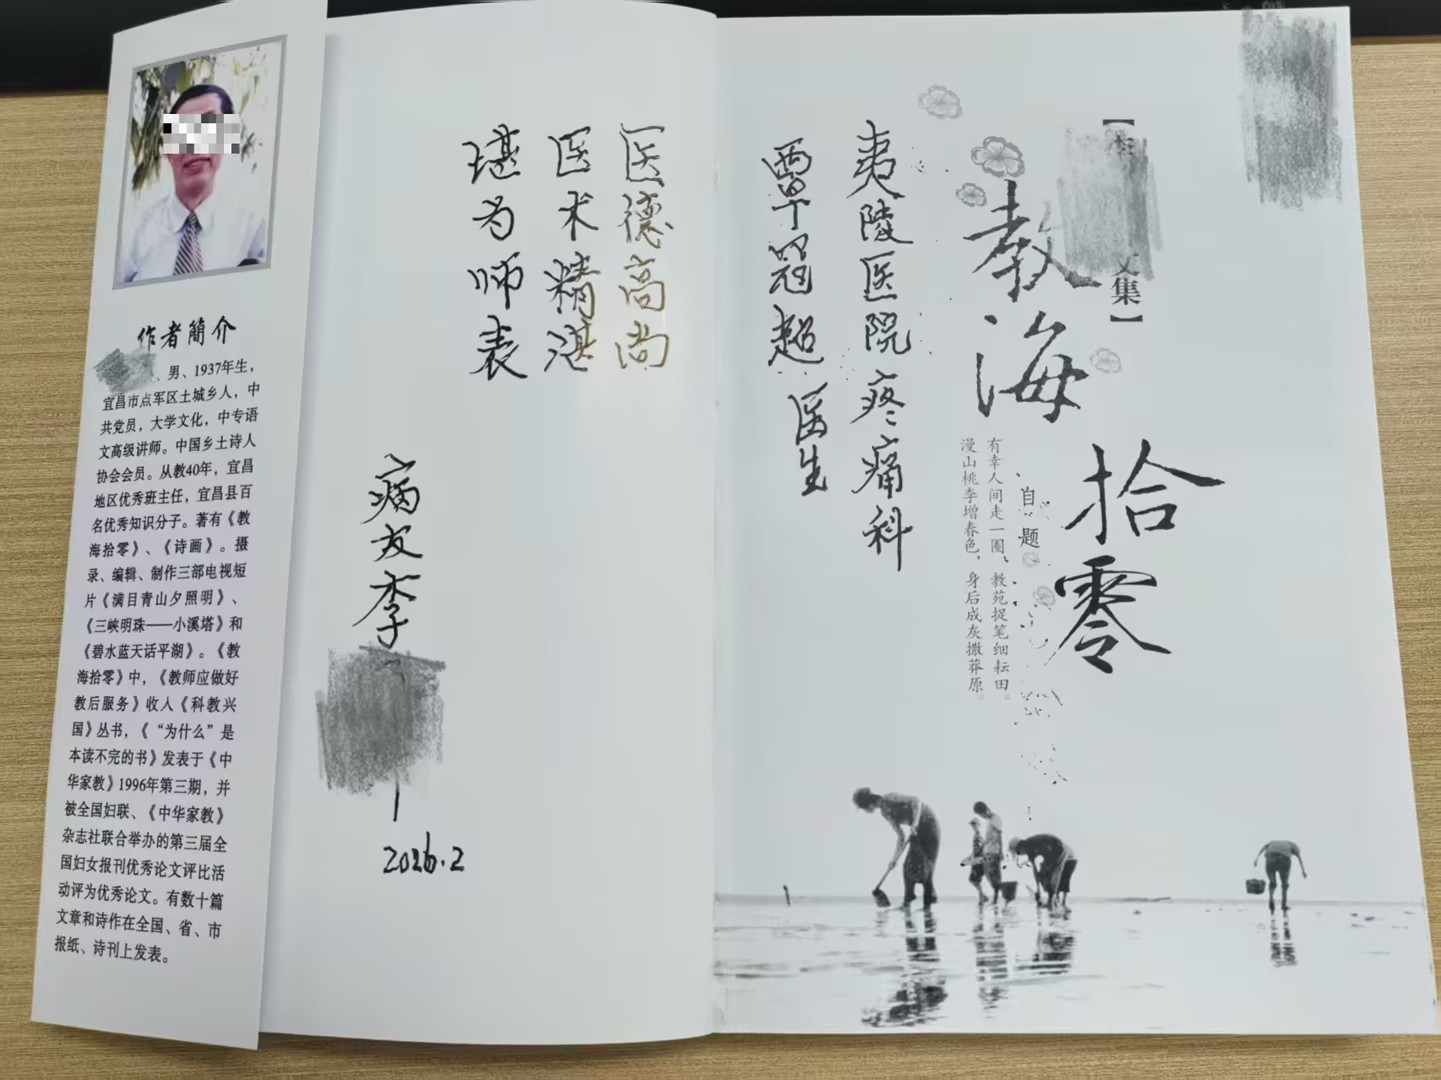 作者簡介
、男、1937年生，
宜昌市点军区土城乡人，中
共党员，大学文化，中专语
文高级讲师。中国乡土诗人
协会会员。从教40年，宜昌
地区优秀班主任，宜昌县百
名优秀知识分子。著有《教
海拾零》、《诗画》。摄
录、编辑、制作三部电视短
片《满目青山夕照明》、
《三峡明珠——小溪塔》和
《碧水蓝天话平湖》。《教
海拾零》中，《教师应做好
教后服务》收人《科教兴
国》丛书，《“为什么”是
本读不完的书》发表于《中
华家教》1996年第三期，并
被全国妇联、《中华家教》
杂志社联合举办的第三届全
国妇女报刊优秀论文评比活
动评为优秀论文。有数十篇
文章和诗作在全国、省、市
报纸、诗刊上发表。
医德高尚
医术精湛
堪为师表
病友李
2026.2
【
文集】
教海
拾零
自题
有幸人间走一圈，教苑捉笔细耘田。
漫山桃李增春色，身后成灰撒莽原。
夷陵医院疼痛科
覃冠超医生